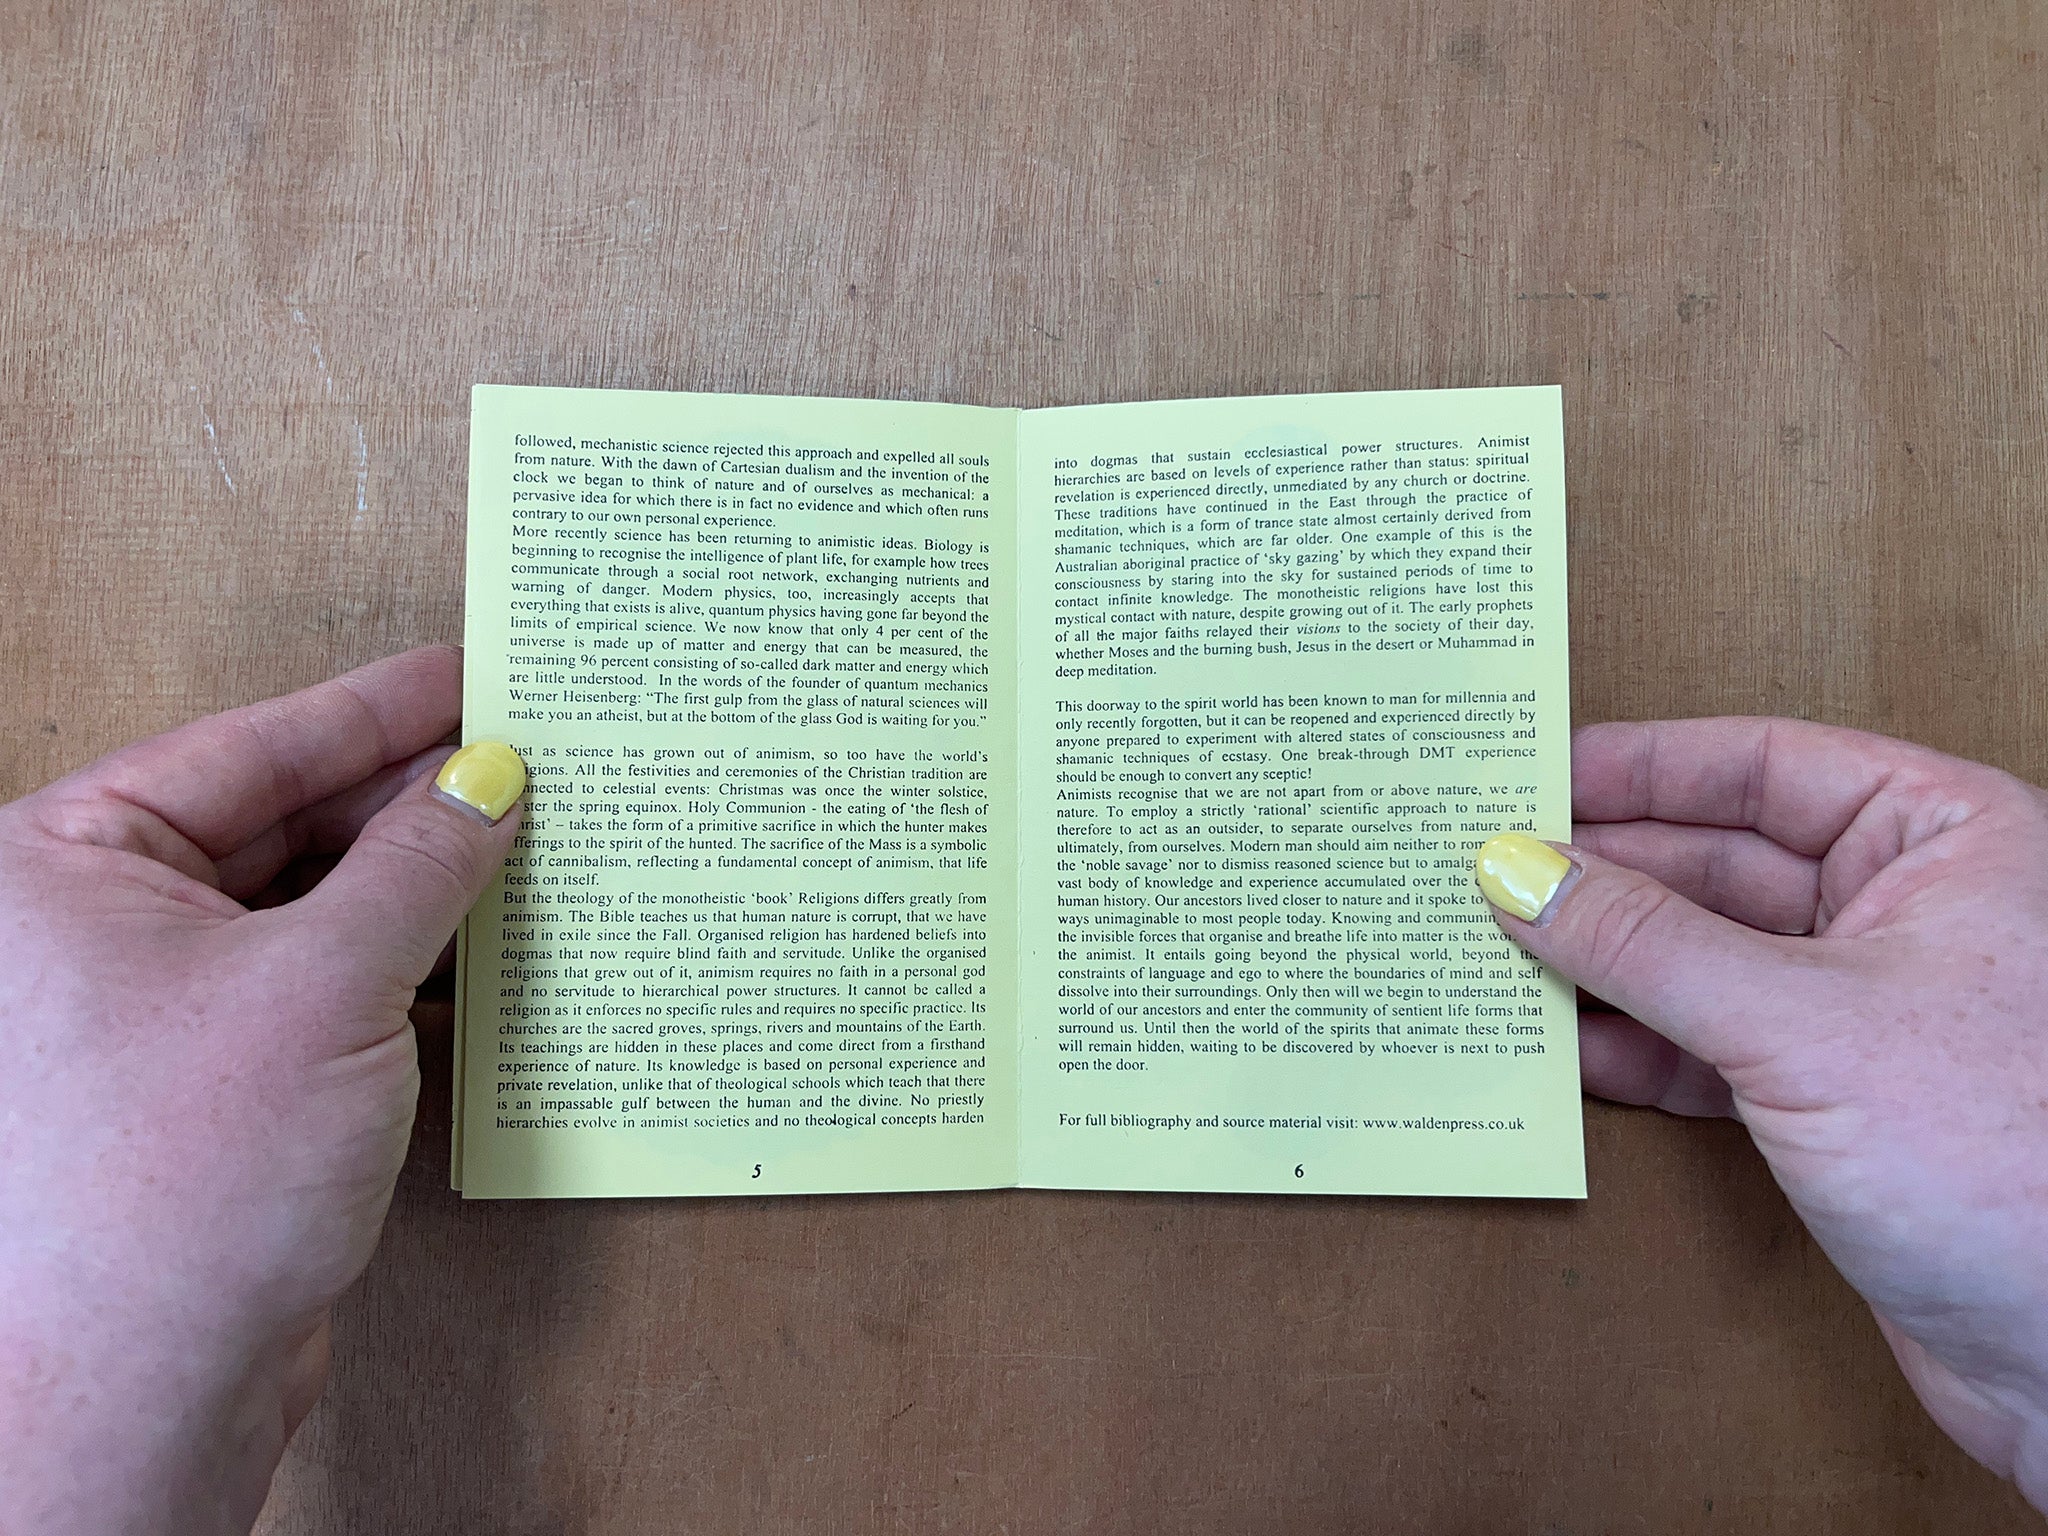 followed, mechanistic science rejected this approach and expelled all souls
from nature. With the dawn of Cartesian dualism and the invention of the
clock we began to think of nature and of ourselves as mechanical: a
pervasive idea for which there is in fact no evidence and which often runs
contrary to our own personal experience.
More recently science has been returning to animistic ideas. Biology is
beginning to recognise the intelligence of plant life, for example how trees
communicate through a social root network, exchanging nutrients and
warning of danger. Modern physics, too, increasingly accepts that
everything that exists is alive, quantum physics having gone far beyond the
limits of empirical science. We now know that only 4 per cent of the
universe is made up of matter and energy that can be measured, the
remaining 96 percent consisting of so-called dark matter and energy which
are little understood. In the words of the founder of quantum mechanics
Werner Heisenberg: “The first gulp from the glass of natural sciences will
make you an atheist, but at the bottom of the glass God is waiting for you.”
Just as science has grown out of animism, so too have the world’s
All the festivities and ceremonies of the Christian tradition are
to celestial events: Christmas was once the winter solstice,
the spring equinox. Holy Communion - the eating of ‘the flesh of
– takes the form of a primitive sacrifice in which the hunter makes
to the spirit of the hunted. The sacrifice of the Mass is a symbolic
act of cannibalism, reflecting a fundamental concept of animism, that life
feeds on itself.
But the theology of the monotheistic ‘book’ Religions differs greatly from
animism. The Bible teaches us that human nature is corrupt, that we have
lived in exile since the Fall. Organised religion has hardened beliefs into
dogmas that now require blind faith and servitude. Unlike the organised
religions that grew out of it, animism requires no faith in a personal god
and no servitude to hierarchical power structures. It cannot be called a
religion as it enforces no specific rules and requires no specific practice. Its
churches are the sacred groves, springs, rivers and mountains of the Earth.
Its teachings are hidden in these places and come direct from a firsthand
experience of nature. Its knowledge is based on personal experience and
private revelation, unlike that of theological schools which teach that there
is an impassable gulf between the human and the divine. No priestly
hierarchies evolve in animist societies and no theological concepts harden
5
into dogmas that sustain ecclesiastical power structures. Animist
hierarchies are based on levels of experience rather than status: spiritual
revelation is experienced directly, unmediated by any church or doctrine.
These traditions have continued in the East through the practice of
meditation, which is a form of trance state almost certainly derived from
shamanic techniques, which are far older. One example of this is the
Australian aboriginal practice of ‘sky gazing’ by which they expand their
consciousness by staring into the sky for sustained periods of time to
contact infinite knowledge. The monotheistic religions have lost this
mystical contact with nature, despite growing out of it. The early prophets
of all the major faiths relayed their visions to the society of their day,
whether Moses and the burning bush, Jesus in the desert or Muhammad in
deep meditation.
This doorway to the spirit world has been known to man for millennia and
only recently forgotten, but it can be reopened and experienced directly by
anyone prepared to experiment with altered states of consciousness and
shamanic techniques of ecstasy. One break-through DMT experience
should be enough to convert any sceptic!
Animists recognise that we are not apart from or above nature, we are
nature. To employ a strictly ‘rational’ scientific approach to nature is
therefore to act as an outsider, to separate ourselves from nature and,
ultimately, from ourselves. Modern man should aim neither to
the ‘noble savage’ nor to dismiss reasoned science but to
vast body of knowledge and experience accumulated over the
human history. Our ancestors lived closer to nature and it spoke to
ways unimaginable to most people today. Knowing and
the invisible forces that organise and breathe life into matter is the
the animist. It entails going beyond the physical world, beyond the
constraints of language and ego to where the boundaries of mind and self
dissolve into their surroundings. Only then will we begin to understand the
world of our ancestors and enter the community of sentient life forms that
surround us. Until then the world of the spirits that animate these forms
will remain hidden, waiting to be discovered by whoever is next to push
open the door.
For full bibliography and source material visit: www.waldenpress.co.uk
6